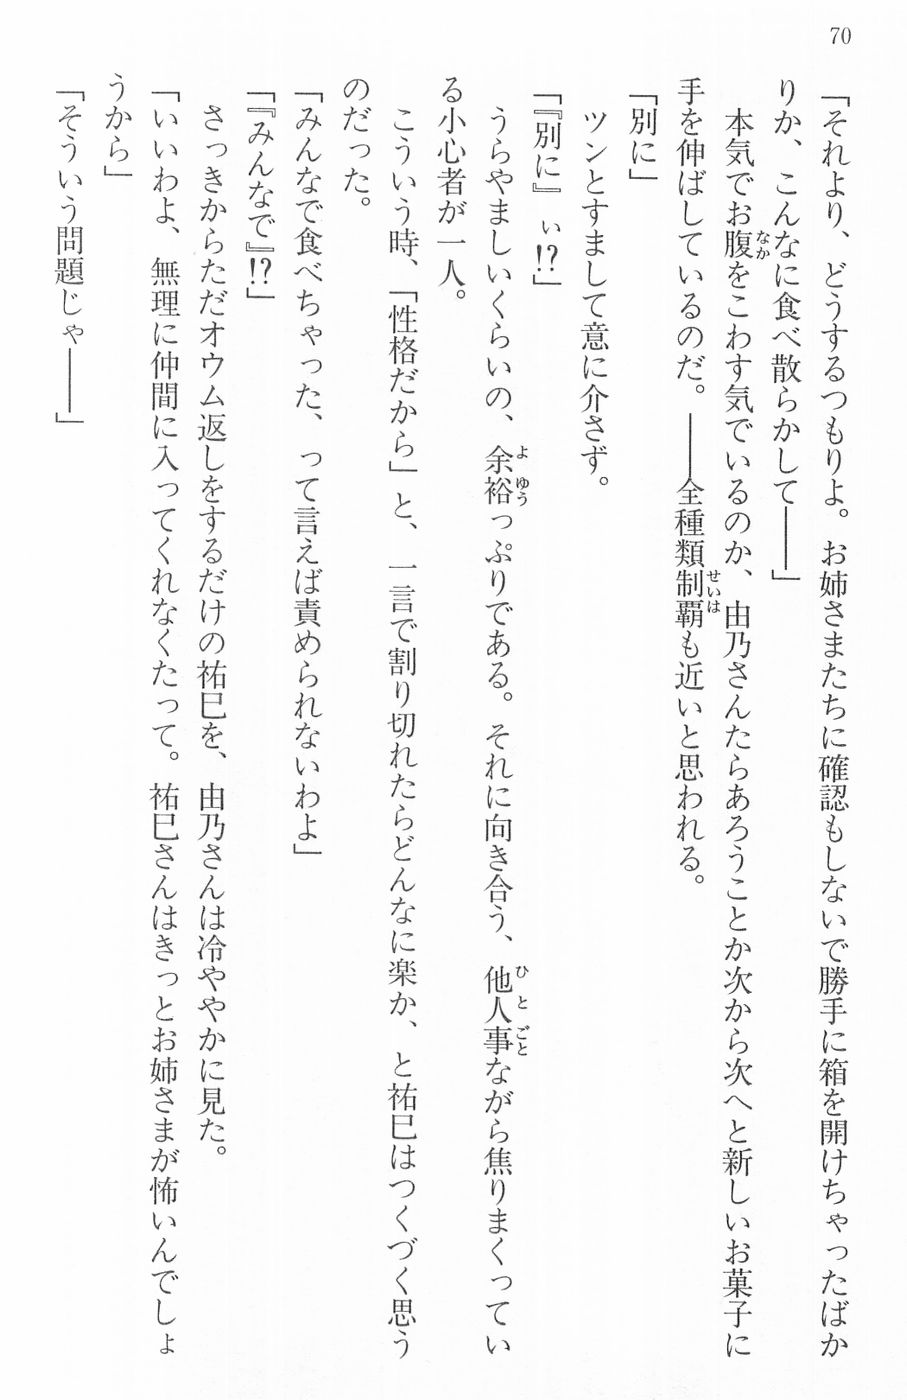 70
「それより、どうするつもりよ。お姉さまたちに確認もしないで勝手に箱を開けちゃったばか
りか、こんなに食べ散らかして――」
本気でお腹をこわす気でいるのか、由乃さんたらあろうことか次から次へと新しいお菓子に
なか
手を伸ばしているのだ。――全種類制覇も近いと思われる。
せいは
「別に」
ツンとすまして意に介さず。
「『別に』ぃ!?」
うらやましいくらいの、余裕っぷりである。それに向き合う、他人事ながら焦りまくってい
よゆう
ひとごと
る小心者が一人。
こういう時、「性格だから」と、一言で割り切れたらどんなに楽か、と祐巳はつくづく思う
のだった。
「みんなで食べちゃった、って言えば責められないわよ」
「『みんなで』!?」
さっきからただオウム返しをするだけの祐巳を、由乃さんは冷ややかに見た。
「いいわよ、無理に仲間に入ってくれなくたって。祐巳さんはきっとお姉さまが怖いんでしょ
うから」
「そういう問題じゃ――」